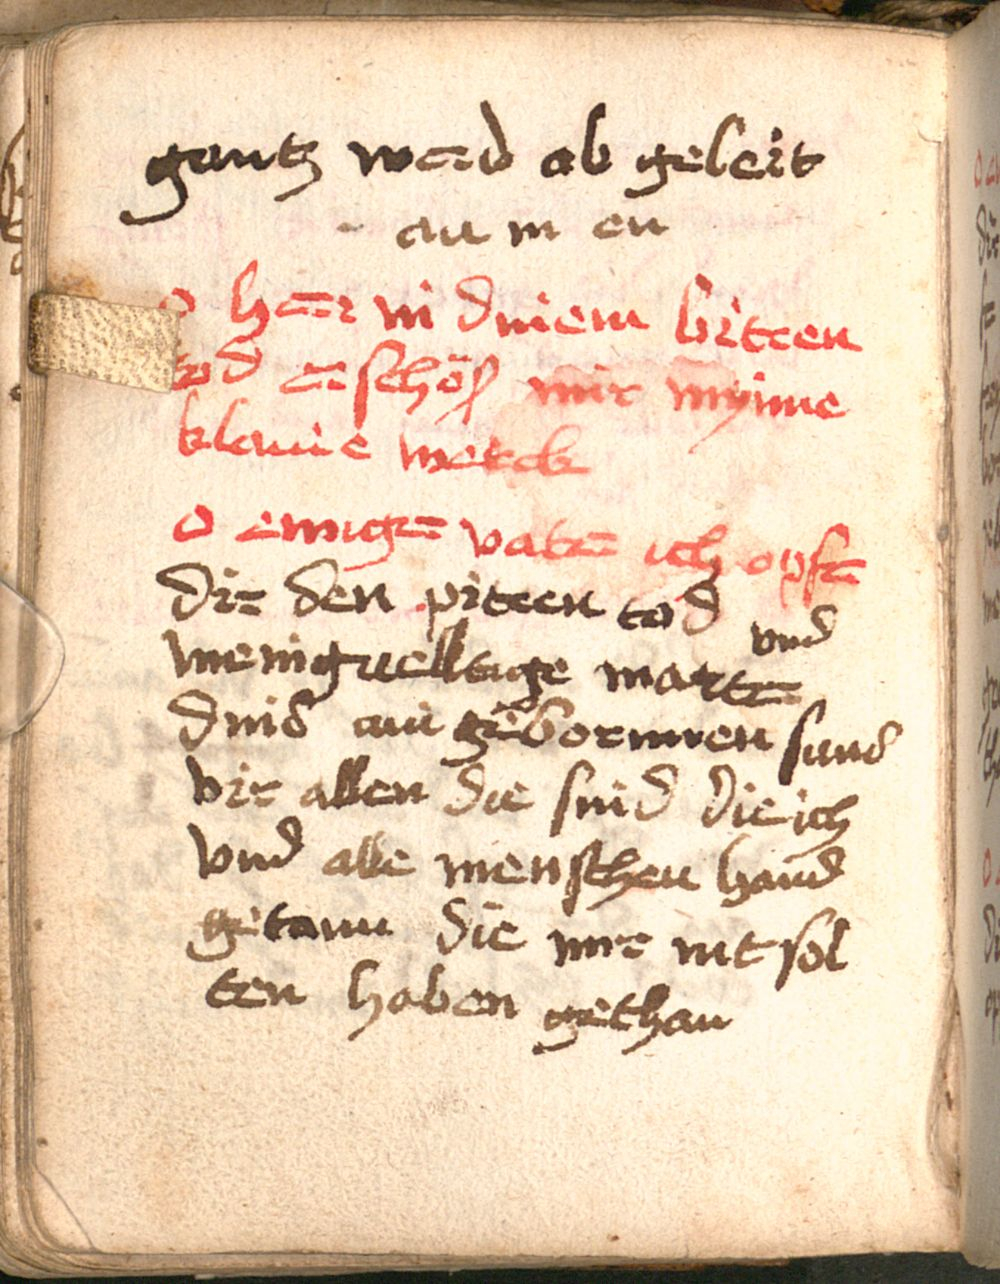 gantz werd ab geleit
amen
o herr in dinem bitteren
tod erschös mir myine
klaine werck
o ewiger vater ich opfer
dir den pitteren tod vnd
menigueltige marter
dins ain gebornnen suns
vir allen die sind die ich
vnd alle menschen hand
getann die mir nit sol
ten haben gethan